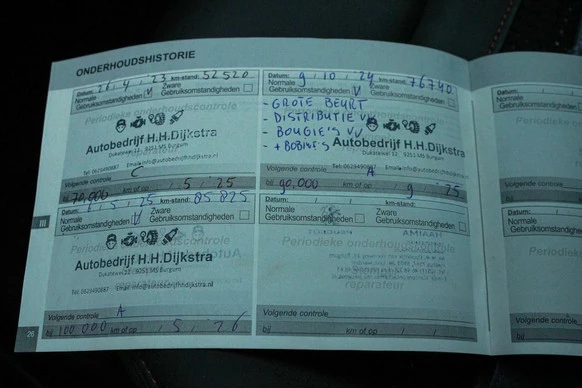 ONDERHOUDSHISTORIE
Datum: 26 4 23 km-stand: 52520
Normale Gebruiksomstandigheden V Zware Gebruiksomstandigheden
Periodieke onderhoudscontrole
Autobedrijf H.H.Dijkstra
Dukatewei 12, 9251 MS Burgum
Tel: 0623490887 Email: info@autobedrijfhhdijkstra.nl
Volgende controle C
bij 70,000 km of op 5 25
Datum: 9 10 24 km-stand: 76740
Normale Gebruiksomstandigheden V Zware Gebruiksomstandigheden
- GROTE BEURT
- DISTRIBUTIE VV
- BOUGIE'S VV
- + BOBINE'S
Autobedrijf H.H.Dijkstra
Dukatewei 12, 9251 MS Burgum
Tel: 0623490887 Email: info@autobedrijfhhdijkstra.nl
Volgende controle: A
bij 90,000 km of op 9 25
5 25 85825
Normale Gebruiksomstandigheden V Zware Gebruiksomstandigheden
Autobedrijf H.H.Dijkstra
Dukatewei 12, 9251 MS Burgum
Tel: 0623490887 Email: info@autobedrijfhhdijkstra.nl
Volgende controle: A
bij 100.000 km of op 5 26
Datum: km-stand:
Normale Gebruiksomstandigheden Zware Gebruiksomstandigheden
Periodieke onderhoudscontrole
reparateur
Volgende controle:
bij km of op
III
26
Datum:
Normale
Gebruiksomstandigheden
Volgende controle
bij
Datum:
Normale
Gebruiksomstandigheden
Volgende controle:
bij